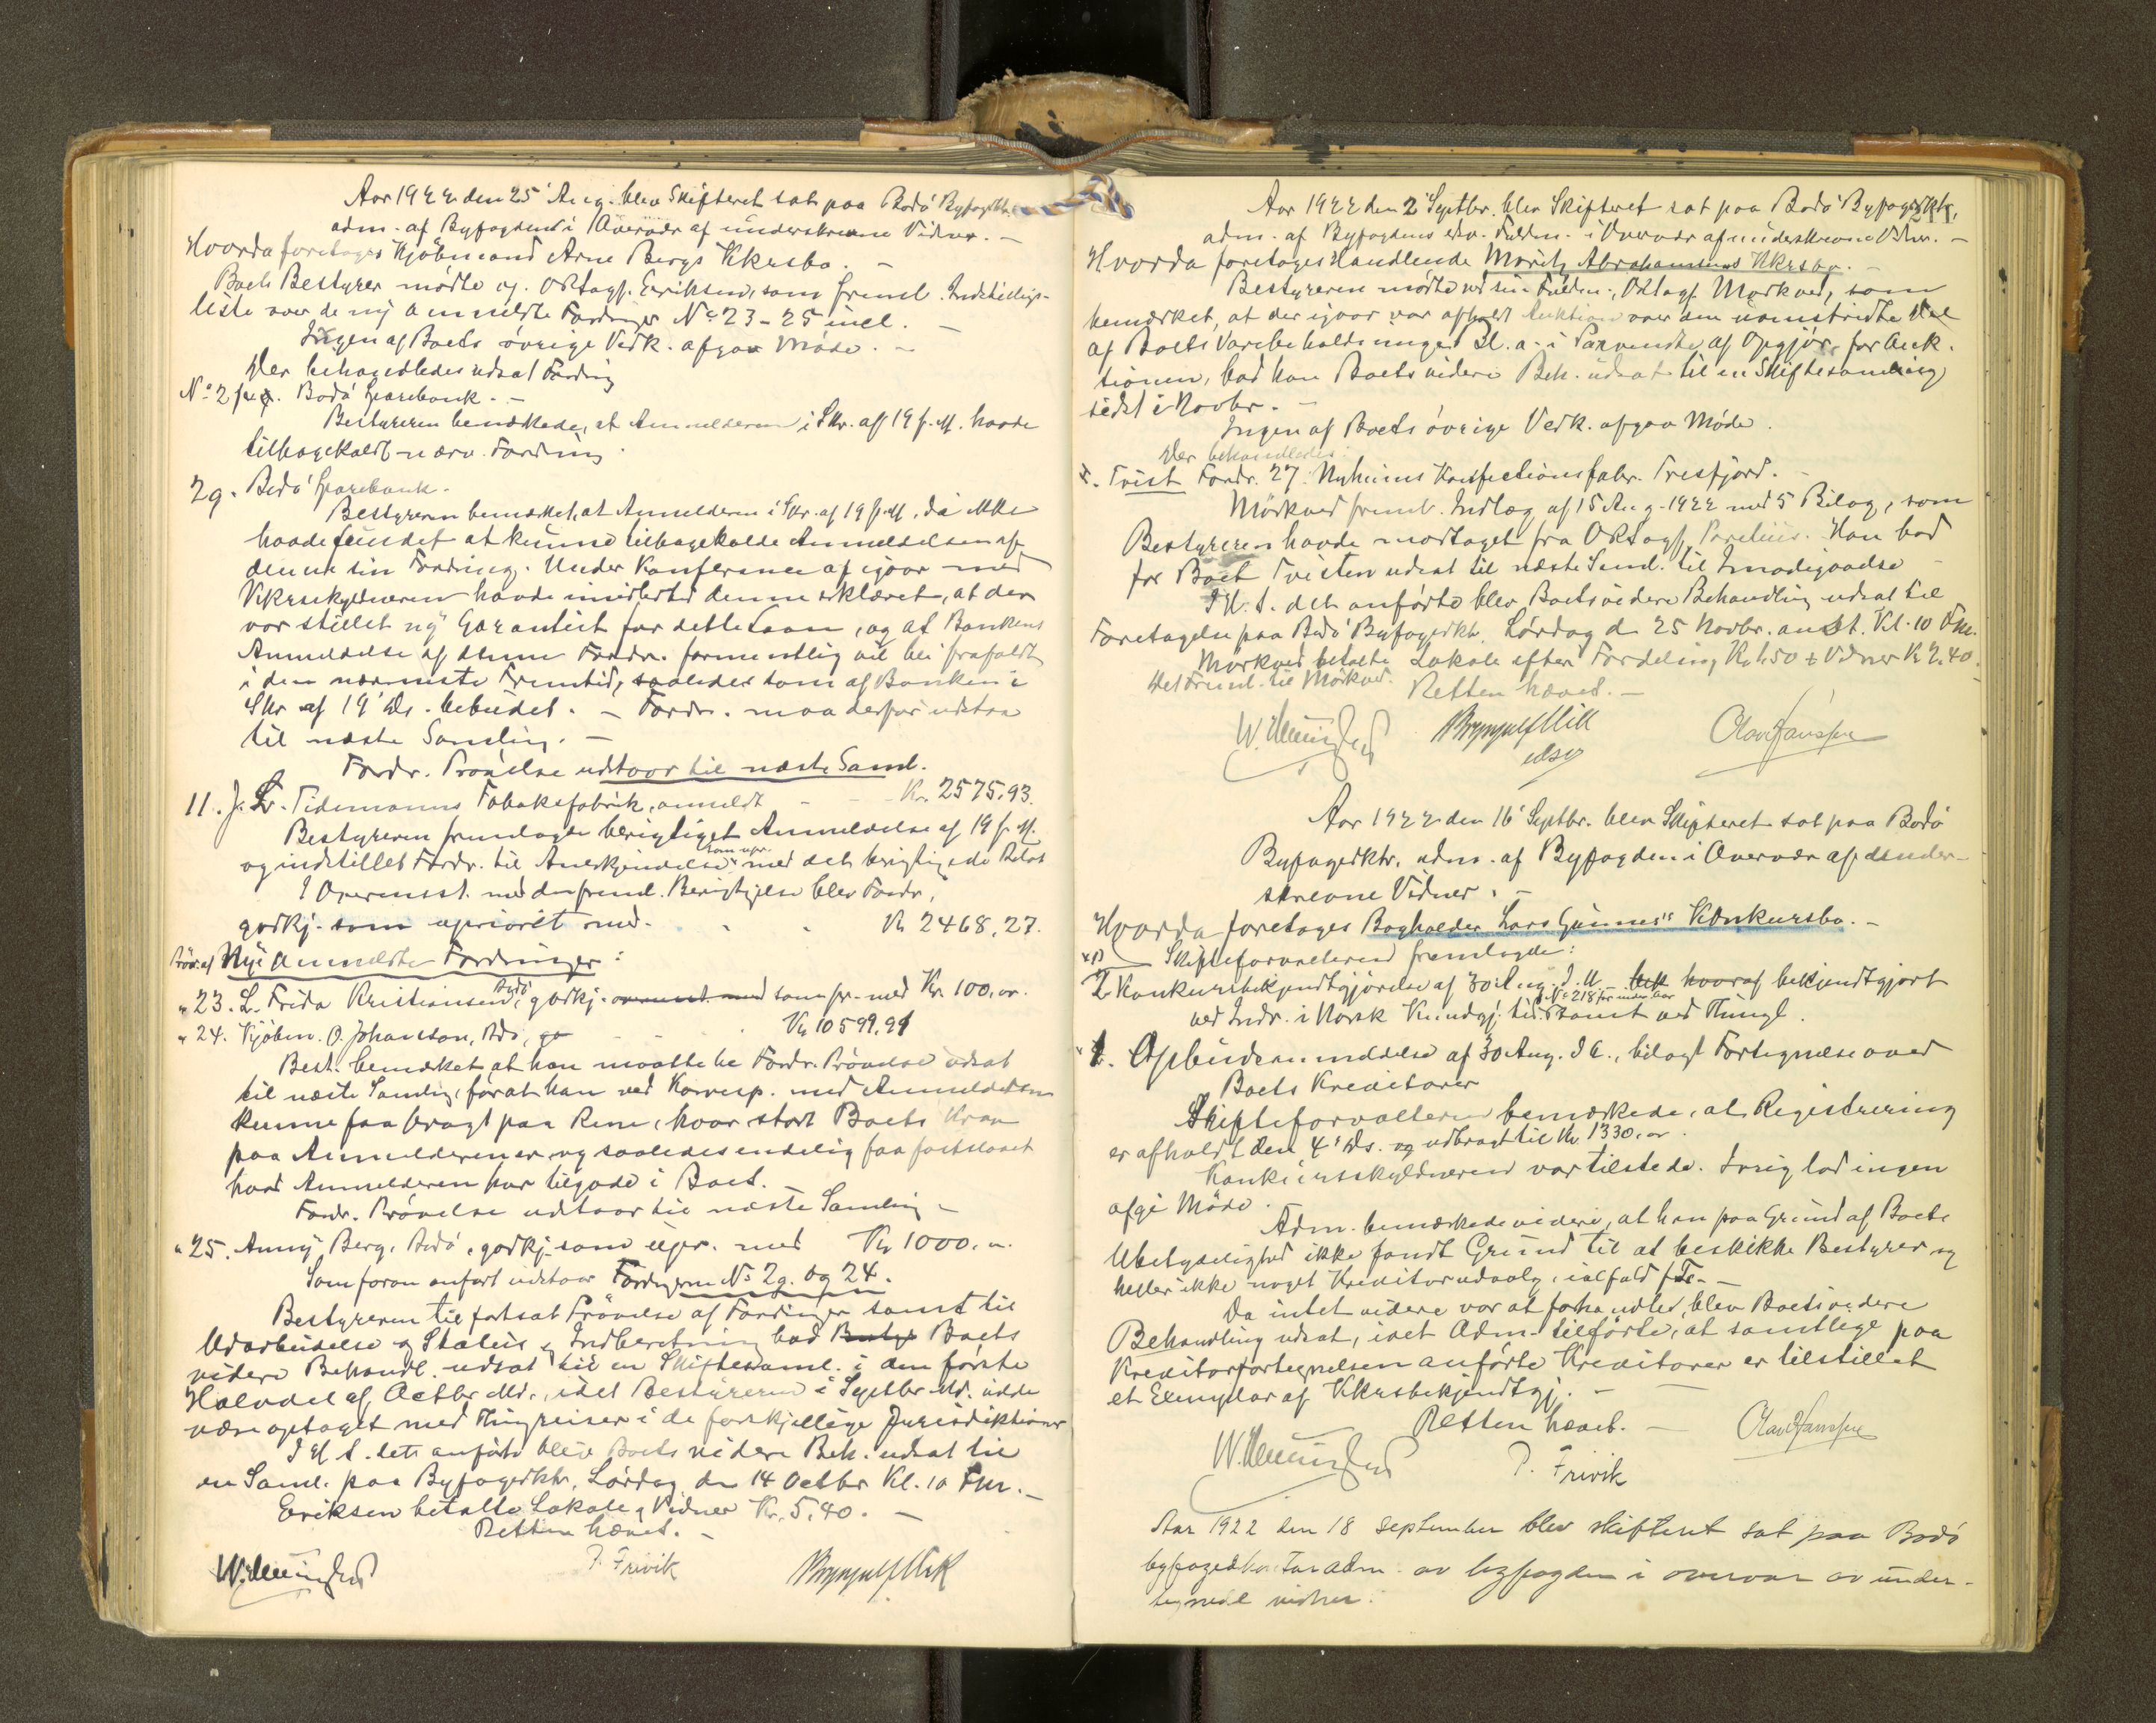 Aar 1922 den 25' Aug. blev Skifteret sat paa Bodö Byfogdktr.
adm. af Byfogden i Overvær af underskrevne Vidner. –
Hvorda foretoges Kjöbmand Arne Bergs Kkrsbo. –
Boets Bestyrer mödte og. ORsagf. Eriksen, som freml. Indstillings-
liste over de ny anmeldte Fordringer No 23-25 incl. –
Ingen af Boets övrige Vedk. afgav Möde. –
Der behandledes udsat Fordring
No 2 Bodö Sparebank. –
Bestyreren bemærkede, at Anmelderen i Skr. af 19 f. M. havde
tilbagekaldt nærv. Fordring.
2g. Bodö Sparebank.
Bestyreren bemærket, at Anmelderen i Skr. af 19 f. M. da ikke
havde fundet at kunne tilbagekalde Anmeldelsen af
denne sin Fordring. Under Konference af igaar med
Kkrsskyldneren havde imidlertid denne erklæret, at der
var stillet ny Garantist for dette Laan, og at Bankens
Anmeldelse af denne Fordr. formentlig vil bli frafaldt
i den nærmeste Fremtid, saaledes som af Banken i
Skr. af 19' ds. bebudet. – Fordr. maa derfor udstaa
til næste Samling. –
Fordr. Prövelse udstaar til næste Saml.
11. J. L. Tidemanns Tobaksfabrik, anmeldt - - - Kr. 2575,93.
Bestyreren fremlagde berigtiget Anmeldelse af 19 f. M.
og indstillet Fordr. til Anerkjendelse som upr. med det berigtigede Belöb
I Overensst. med den freml. Berigtigelse blev Fordr.
godkj. som uprioriet med. . . . Kr 2468,27.
Pröv. af Nye anmeldte Fordringer:
" 23. L. Frida Kristiansen, Bodö, godkj. som pr. med Kr. 100,00.
" 24. Kjöbm. O. Johanson, Bdö, Kr 10599,91
Best. bemærket at han maatte be Fordr. Prövelse udsat
til næste Samling, forat han ved Korresp. med Anmelderen
kunne faa bragt paa Rene, hvor stort Boets Krav
paa Anmelderen er, og saaledes endelig faa fastslaaet
hvad Anmelderen har tilgode i Boet.
Fordr. Prövelse udstaar til næste Samling –
" 25. Anny Berg, Bodö, godkj. som upr. med Kr 1000,00.
Som foran anfört udstaar Fordringerne No 2g. og 24.
Bestyreren til fortsat Prövelse af Fordringer samt til
Udarbeidelse af Status og Indberetning bad Boets
videre Behandl. udsat til en Skiftesaml. i den förste
Halvdel af Octbr. Md., idet Bestyreren i Septbr. Md. vilde
være optaget med Thingreiser i de forskjellige Jurisdiktioner
I H. t. dette anförte blev Boets videre Beh. udsat til
en Saml. paa Byfogedktr. Lördag den 14 Octbr Kl. 10 Fm. –
Eriksen betalte Lokale & Vidner Kr. 5,40. –
Retten hævet. –
P. Frivik
Aar 1922 den 2' Septbr. blev Skifteret sat paa Bodö Byfogedktr.,
adm. af Byfogdens edsv. Fuldm. i Overvær af underskrevne Vidner. –
Hvorda foretoges Handlende Moritz Abrahamsens Kkrsbo. –
Bestyreren mödte ved sin Fuldm., ORsagf. Mörkved, som
bemærket, at der igaar var afholdt Auktion over den uomstridte Del
af Boets Varebeholdninger. Bl. a. i Paavente af Opgjör for Auk-
tionen, bad han Boets videre Beh. udsat til en Skiftesamling
sidst i Novbr. –
Ingen af Boets övrige Vedk. afgav Möde.
Der behandledes:
Tvist Fordr. 27. Nyheims Konfectionsfabr. Tresfjord. –
Mörkved freml. Indlæg af 15 Aug. 1922 med 5 Bilag, som
Bestyreren havde modtaget fra ORsagf. Parelius. Han bad
for Boet Tvisten udsat til næste Saml. til Imödegaaelse –
I H. t. det anförte blev Boets videre Behandling udsat til
Foretagelse paa Bodö Byfogedktr. Lördag d. 25 Novbr. anst. Kl. 10 Fm.
Mörkved betalte Lokale efter Fordeling Kr 1,50 + Vidner Kr 2,40.
Det Freml. til Mörkved. Retten hævet. –
Olav Hansen
Aar 1922 den 16' Septbr. blev Skifteret sat paa Bodö
Byfogedktr. adm. af Byfogden i Overvær af under-
skrevne Vidner. –
Hvorda foretoges Bogholder Lars Gunnes's Konkursbo. –
Skifteforvalteren fremlagde:
2 Konkursbekjendtgjörelse af 30 Aug. D. A. – hvoraf bekjendtgjort
ved Indr. i Norsk Kundgj. tid. No 218 samt ved Thingl.
1. Opbudsanmeldelse af 30 Aug. D. A., bilagt Fortegnelse over
Boets Kreditorer
Skifteforvalteren bemærkede, at Registrering
er afholdt den 4' ds. og udbragt til Kr. 1330,00.
Konkursskyldneren var tilstede. Forövrig lod ingen
afgi Möde.
Adm. bemærkede videre, at han paa Grund af Boets
Ubetydelighed ikke fandt Grund til at beskikke Bestyrer og
heller ikke noget Kreditorudvalg, ialfald f. T. –
Da intet videre var at forhandle, blev Boets videre
Behandling udsat, idet Adm. tilförte, at samtlige paa
Kreditorfortegnelsen anförte Kreditorer er tilstillet
et Exemplar af Kkrsbekjendtgj. –
Retten hævet. –
Olav Hansen
P. Frivik
Aar 1922 den 18 september blev skifteret sat paa Bodö
byfogedkontor adm. av byfogden i overvær av under-
tegnede vidner.